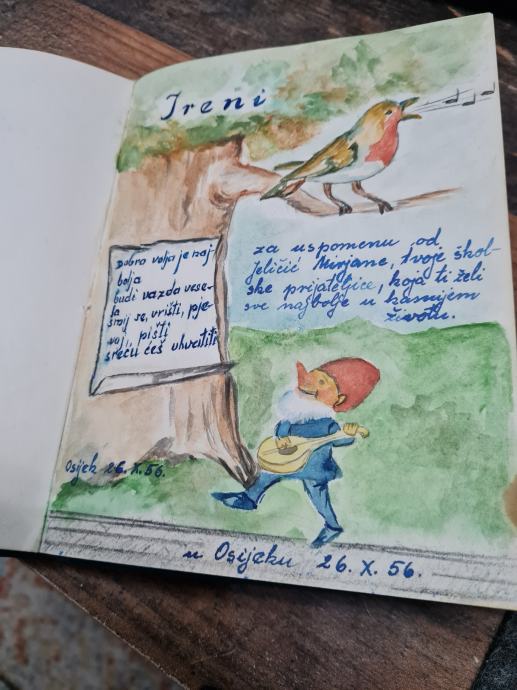 Ireni
Dobra volja je naj-
bolja
budi vazda vese-
la
smij se, vrišti, pje-
vaj, pišti
sreću ćeš uhvatiti
za uspomenu od
Jeličić Mirjane, tvoje škol-
ske prijateljice, koja ti želi
sve najbolje u kasnijem
životu.
Osijek 26. X. 56.
u Osijeku 26. X. 56.